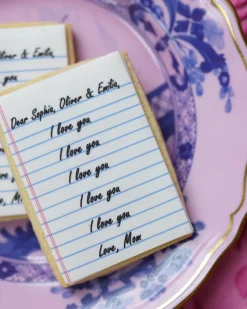 Oliver & Emilia,
you
Dear Sophia, Oliver & Emilia,
I love you
I love you
I love you
I love you
I love you
Love, Mom